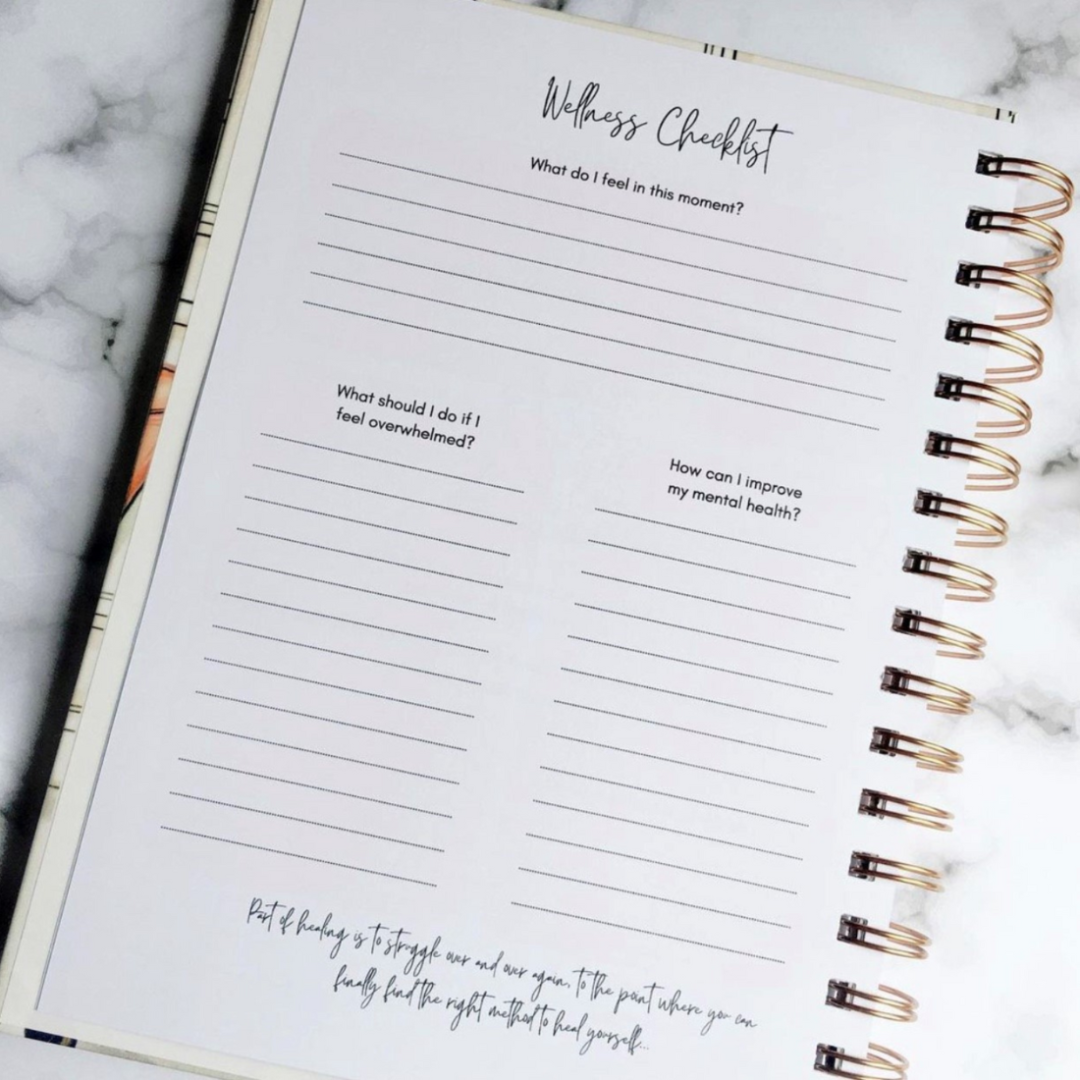 Wellness Checklist
What do I feel in this moment?
What should I do if I
feel overwhelmed?
How can I improve
my mental health?
Part of healing is to struggle over and over again, to the point where you can
finally find the right method to heal yourself...